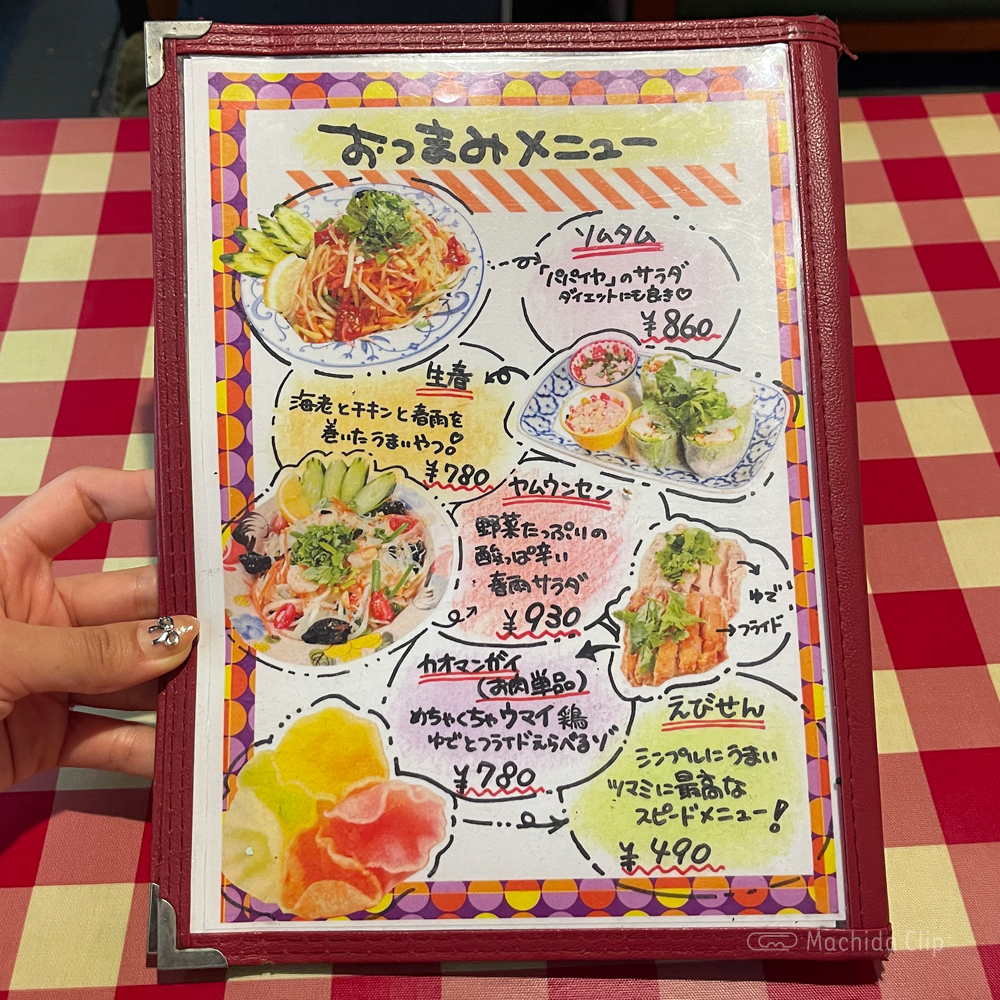 おつまみメニュー
ソムタム
「パパイヤ」のサラダ
ダイエットにも良き♡
¥860
生春
海老とチキンと春雨を
巻いたうまいやつ♡
¥780
ヤムウンセン
野菜たっぷりの
酸っぱ辛い
春雨サラダ
¥930
ゆで
フライド
カオマンガイ
(お肉単品)
めちゃくちゃウマイ鶏
ゆでとフライドえらべるゾ
¥780
えびせん
シンプルにうまい
ツマミに最高な
スピードメニュー!
¥490
Machida Clip